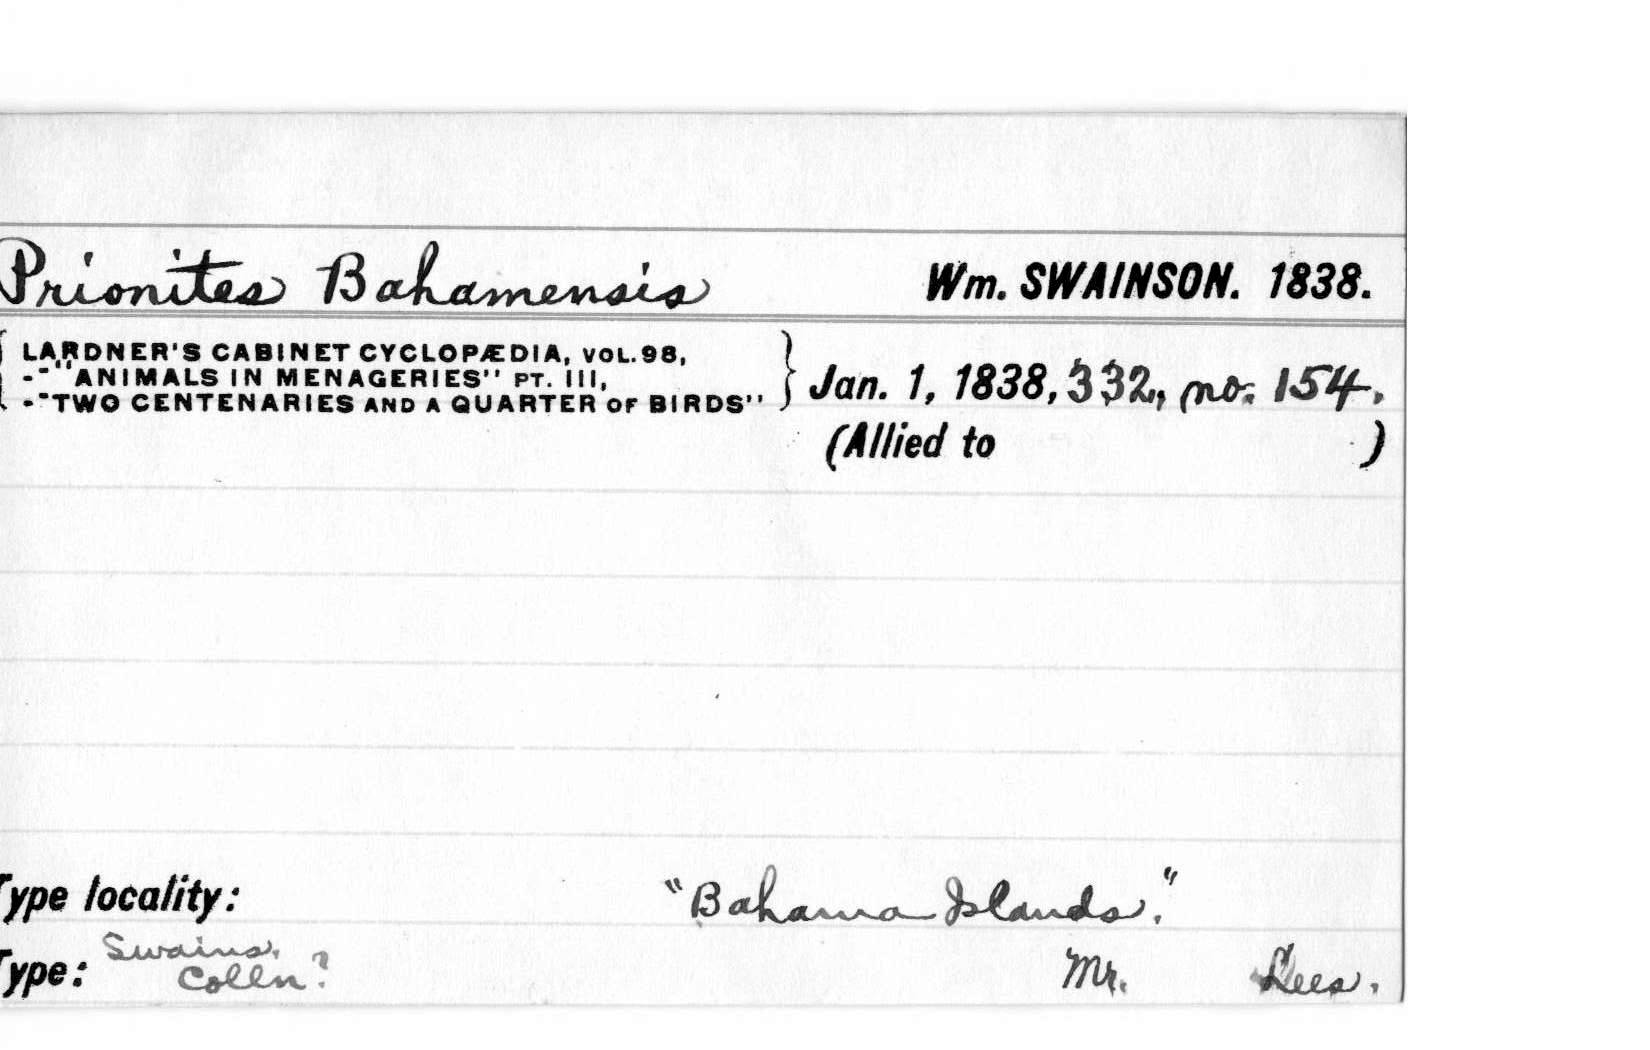 Prionites Bahamensis Wm. SWAINSON. 1838.
LARDNER'S CABINET CYCLOPÆDIA, VOL. 98,
-"ANIMALS IN MENAGERIES" PT. III,
-"TWO CENTENARIES AND A QUARTER OF BIRDS"
Jan. 1, 1838, 332, no. 154.
(Allied to )
Type locality: "Bahama Islands."
Type: Swains. Colln? Mr. Lees.